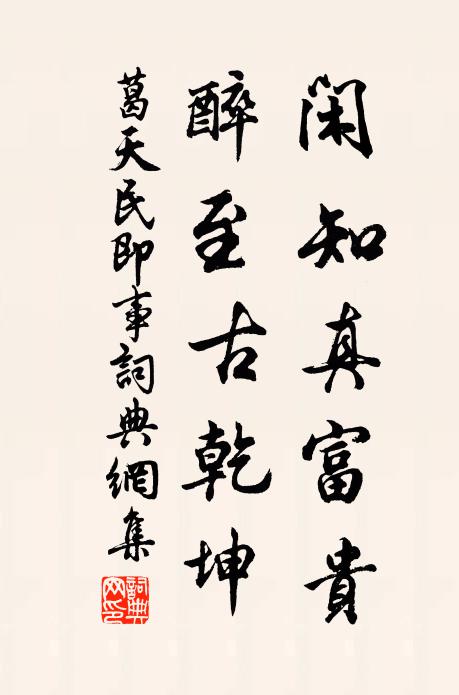 閑知真富貴
醉至古乾坤
葛天民即事詞典網集
詞典網印